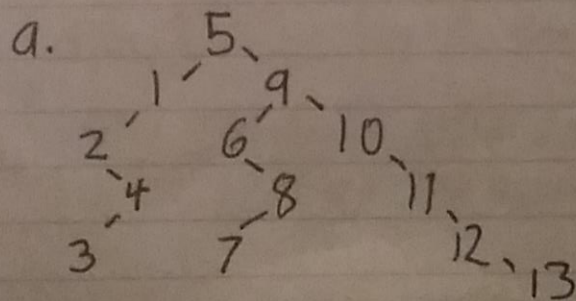 a. 5
1 9
2 6 10
4 8 11
3 7 12
13